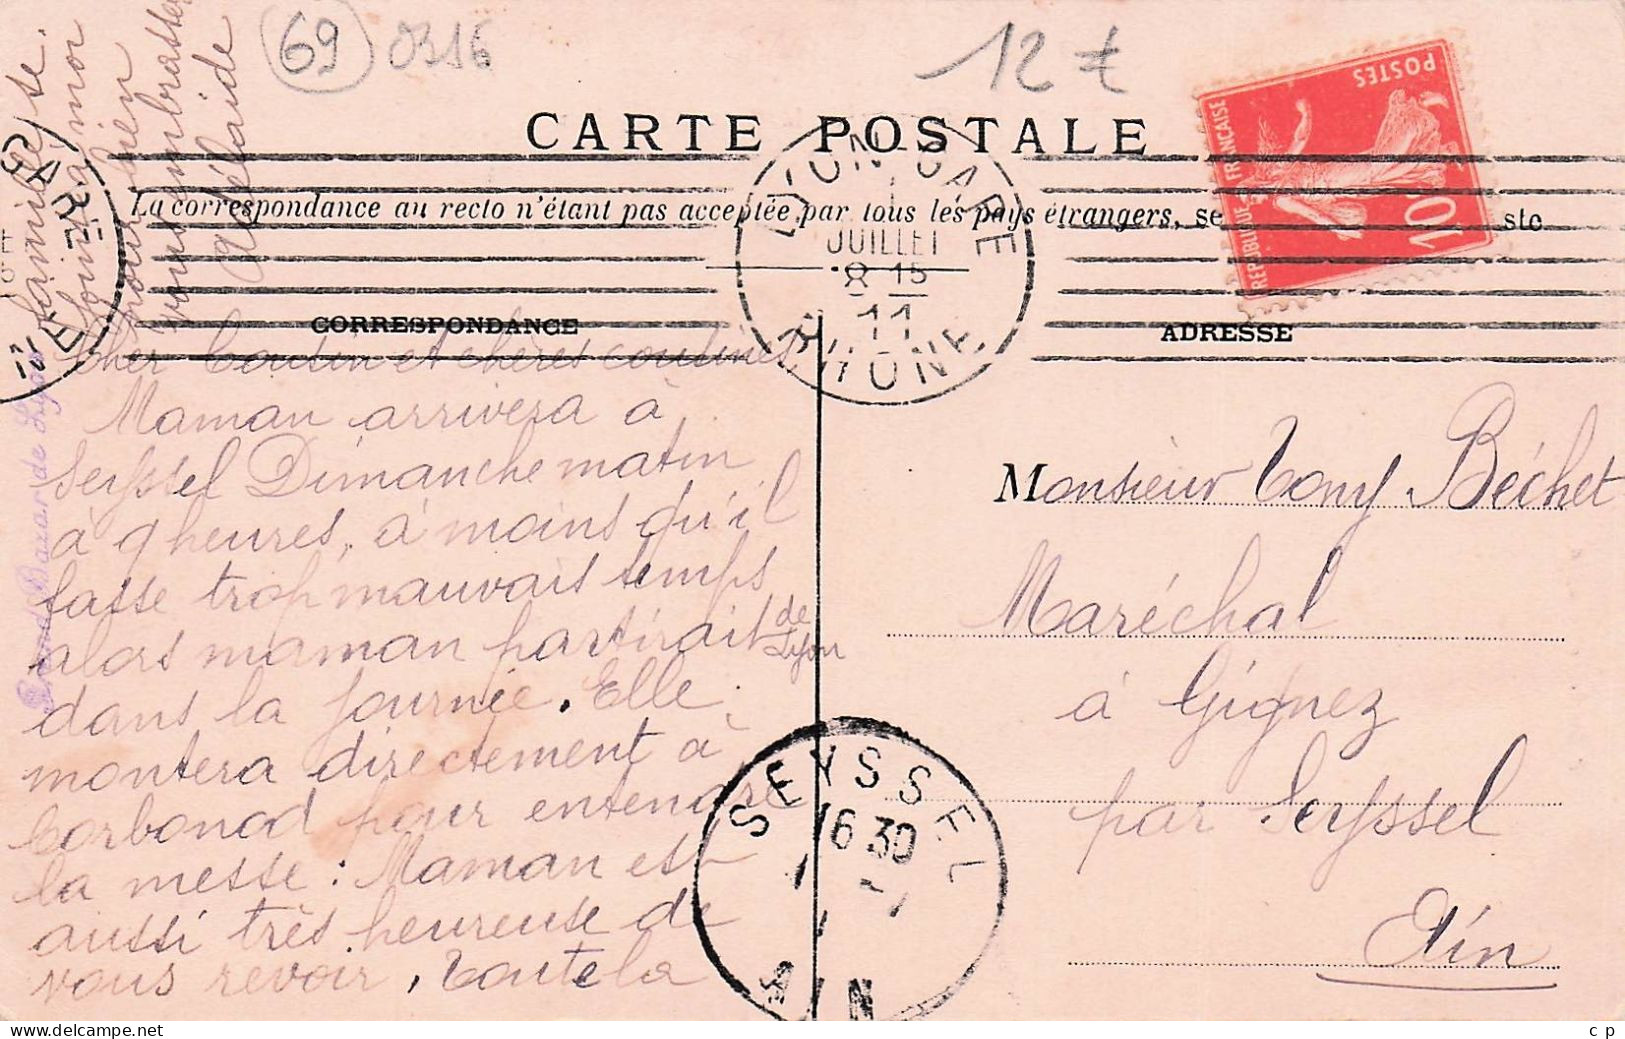 69 0316
12 €
CARTE POSTALE
La correspondance au recto n'étant pas acceptée par tous les pays étrangers, se
ste
REPUBLIQUE FRANCAISE
POSTES
10
LYON GARE
1
JUILLET
8 15
11
RHONE
CORRESPONDANCE
ADRESSE
Cher Cousin et chères cousines
Maman arrivera à
Seyssel Dimanche matin
à 9 heures, à moins qu'il
fasse trop mauvais temps
alors maman partirait de Lyon
dans la journée. Elle
montera directement à
Corbonod pour entendre
la messe : Maman est
aussi très heureuse de
vous revoir, Toute la
famille se
joint à moi
pour bien
vous embrasser
Adélaide
Grand Bazar de Lyon
Monsieur Tony Béchet
Maréchal
à Gignez
par Seyssel
Ain
SEYSSEL
16 30
1
AIN
www.delcampe.net
c p